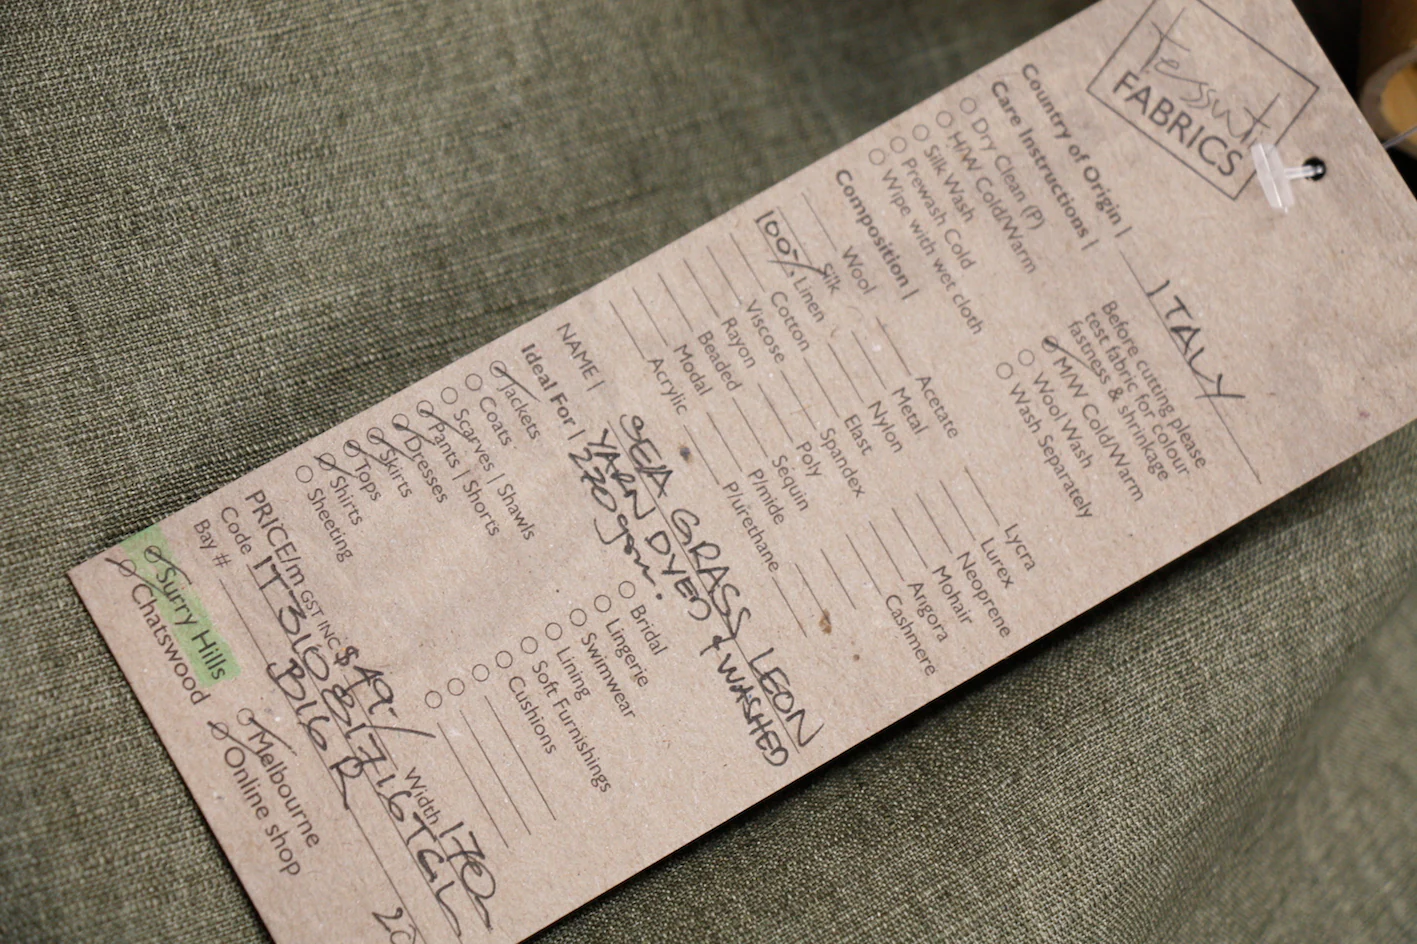 tessuti
FABRICS
Country of Origin | ITALY
Care Instructions |
Dry Clean (P)
H/W Cold/Warm
Silk Wash
Prewash Cold
Wipe with wet cloth
Before cutting please
test fabric for colour
fastness & shrinkage
M/W Cold/Warm
Wool Wash
Wash Separately
Composition |
Wool
Silk
100% Linen
Cotton
Viscose
Rayon
Beaded
Modal
Acrylic
Acetate
Metal
Nylon
Elast
Spandex
Poly
Sequin
P/mide
P/urethane
Lycra
Lurex
Neoprene
Mohair
Angora
Cashmere
NAME | SEA GRASS LEON
YARN DYED & WASHED
270gsm.
Ideal For |
Jackets
Coats
Scarves | Shawls
Pants | Shorts
Dresses
Skirts
Tops
Shirts
Sheeting
Bridal
Lingerie
Swimwear
Lining
Soft Furnishings
Cushions
PRICE/m GST INC $49-/ Width 170
Code IT310831716TGL
Bay # B16 R
Surry Hills
Chatswood
Melbourne
Online shop